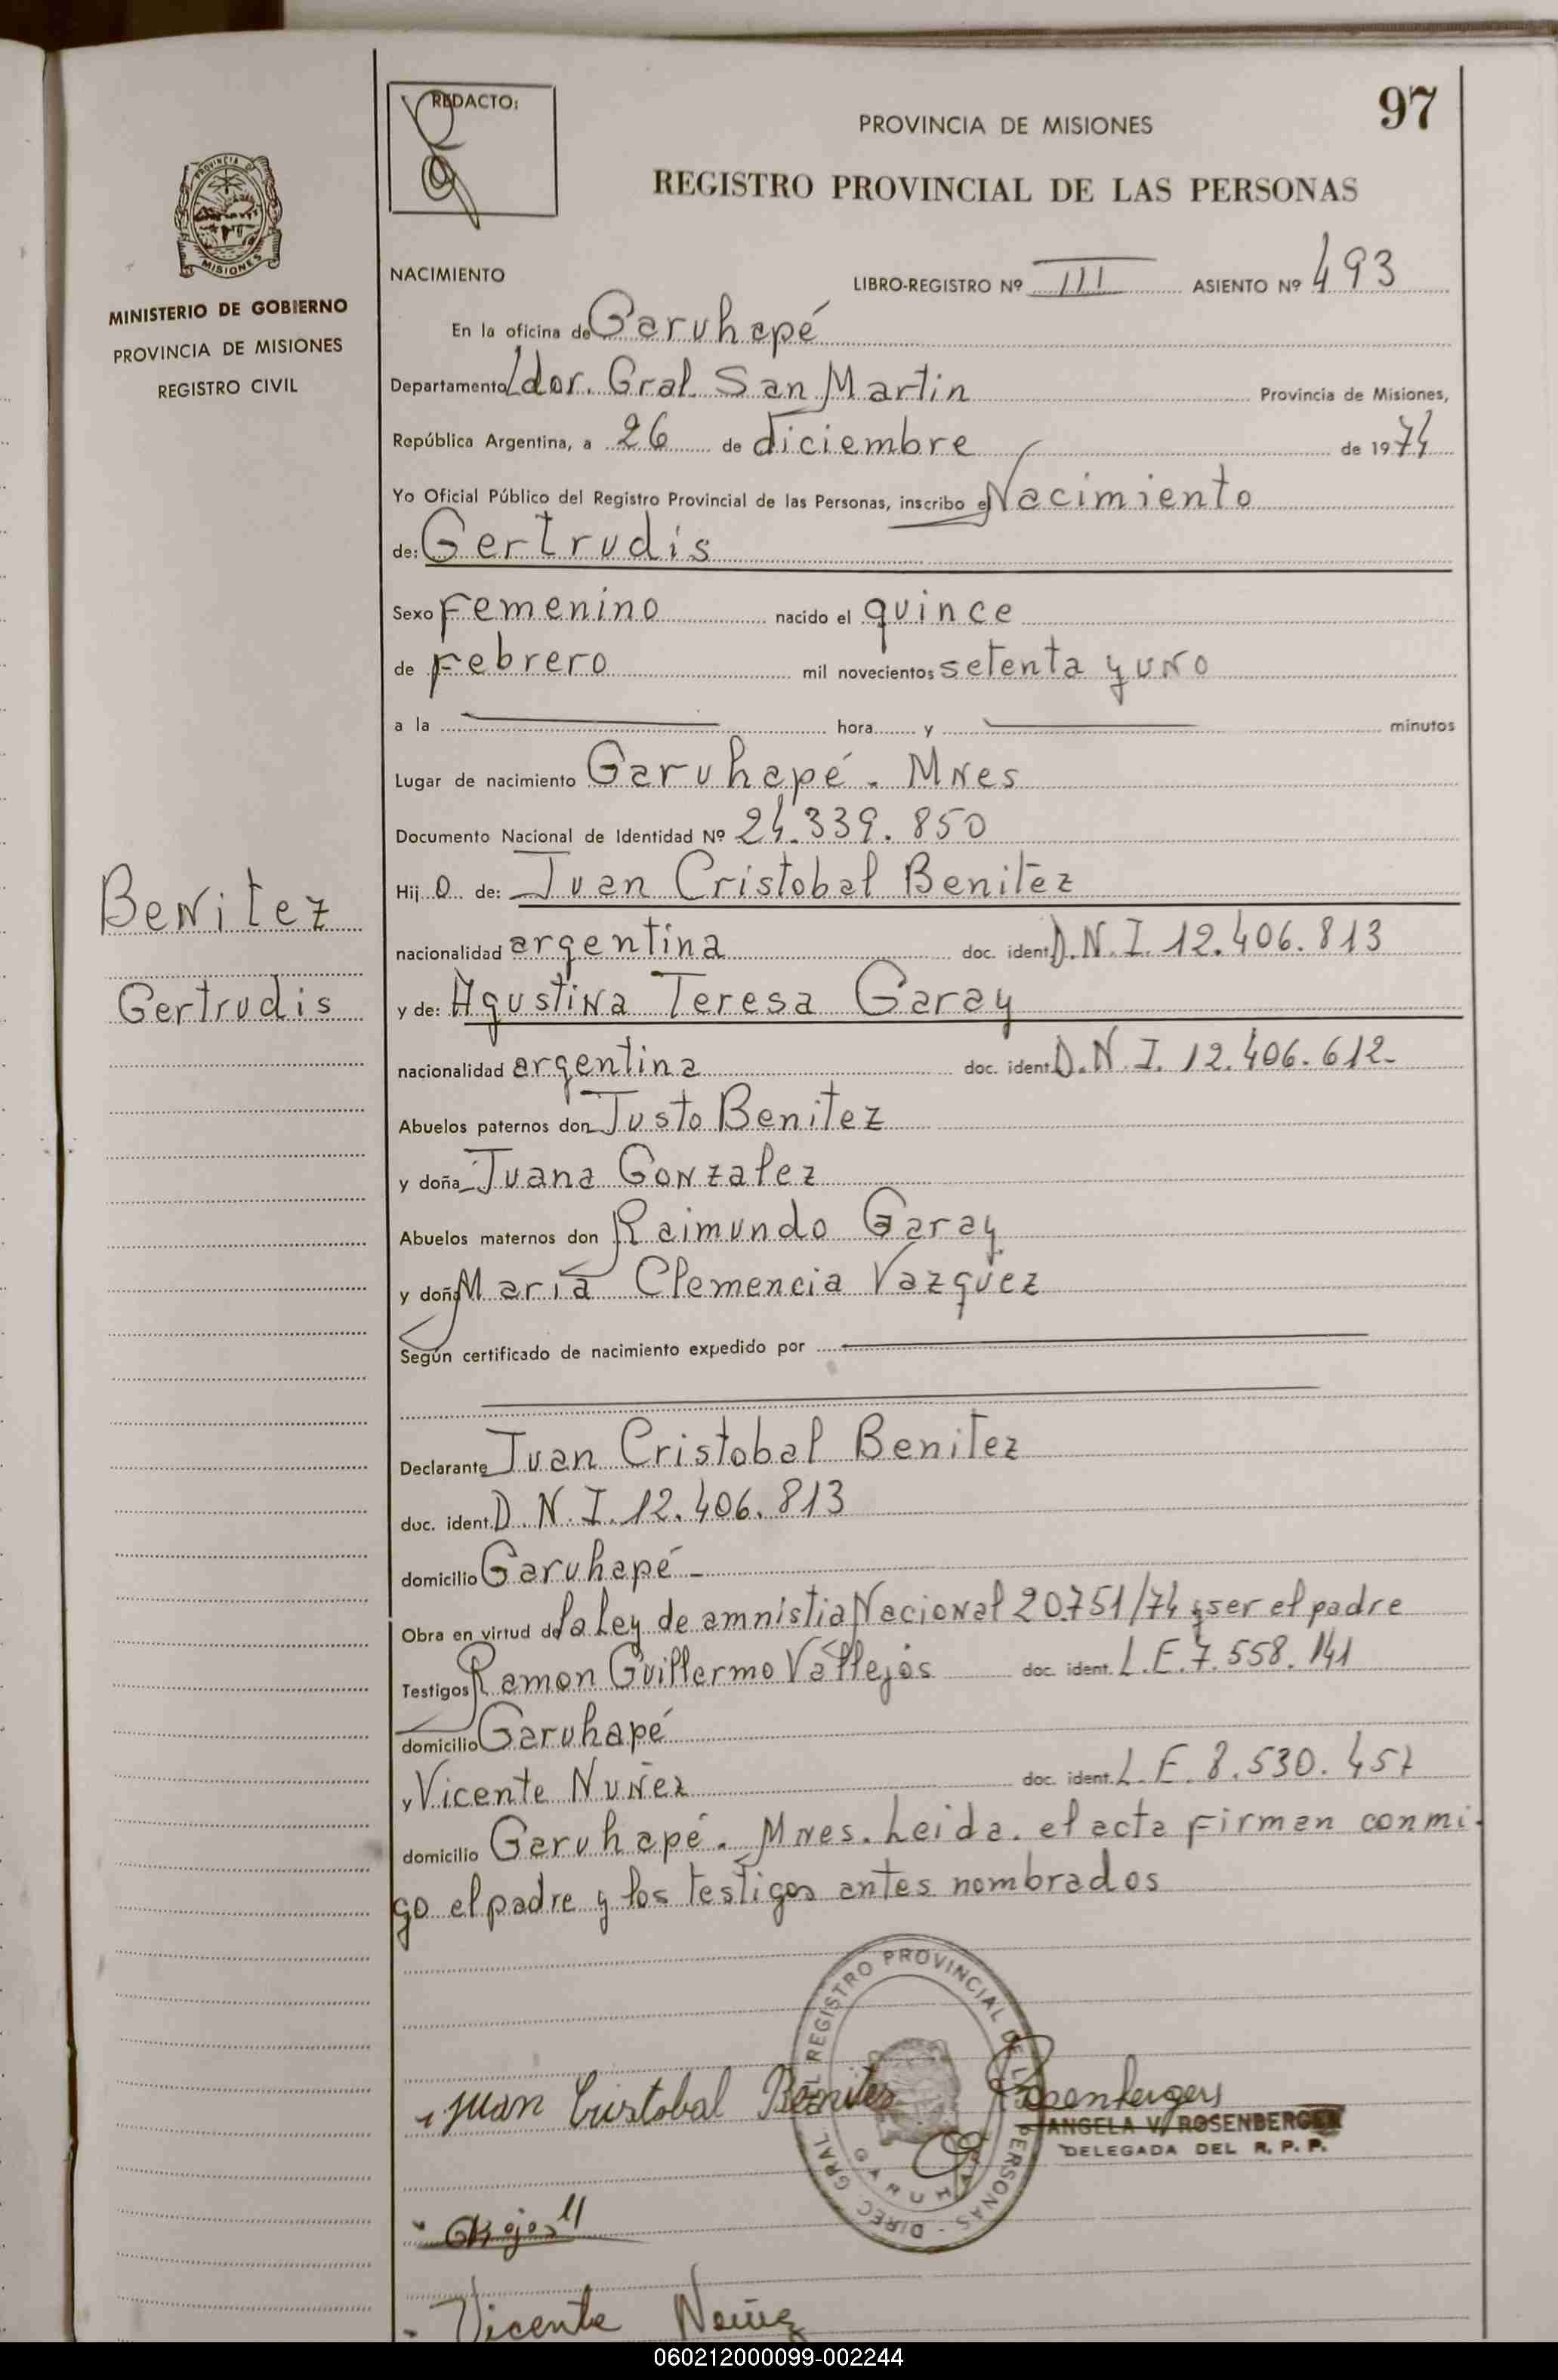 REDACTO:
97
PROVINCIA DE MISIONES
REGISTRO PROVINCIAL DE LAS PERSONAS
PROVINCIA DE
MISIONES
MINISTERIO DE GOBIERNO
PROVINCIA DE MISIONES
REGISTRO CIVIL
NACIMIENTO
LIBRO-REGISTRO Nº III ASIENTO Nº 493
En la oficina de Garuhapé
Departamento Ldor. Gral. San Martin Provincia de Misiones,
República Argentina, a 26 de diciembre de 1974
Yo Oficial Público del Registro Provincial de las Personas, inscribo el Nacimiento
de: Gertrudis
Sexo Femenino nacido el quince
de Febrero mil novecientos setenta y uno
a la hora y minutos
Lugar de nacimiento Garuhapé. Mnes
Documento Nacional de Identidad Nº 24.339.850
Benitez
Gertrudis
Hijo de: Juan Cristobal Benitez
nacionalidad argentina doc. ident. D.N.I. 12.406.813
y de: Agustina Teresa Garay
nacionalidad argentina doc. ident. D.N.I. 12.406.612-
Abuelos paternos don Justo Benitez
y doña Juana Gonzalez
Abuelos maternos don Raimundo Garay
y doña Maria Clemencia Vazquez
Según certificado de nacimiento expedido por
Declarante Juan Cristobal Benitez
doc. ident. D.N.I. 12.406.813
domicilio Garuhapé-
Obra en virtud de la Ley de amnistia Nacional 20.751/74 y ser el padre
Testigos Ramon Guillermo Vallejos doc. ident. L.E. 7.558.141
domicilio Garuhapé
y Vicente Nuñez doc. ident. L.E. 8.530.457
domicilio Garuhapé. Mnes. Leida. el acta firman conmi-
go el padre y los testigos antes nombrados
DIREC. GRAL. DEL REGISTRO PROVINCIAL DE LAS PERSONAS
Juan Cristobal Benites
Rosenberger
ANGELA V. ROSENBERGER
DELEGADA DEL R. P. P.
Vicente Nuñez
060212000099-002244